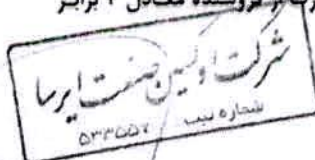 از فروشنده معادل ۲ برابر
شرکت اوکسین صنعت ایرسا
شماره ثبت ۵۳۳۵۵۷